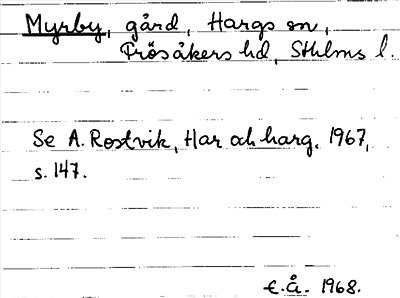 Myrby, gård, Hargs sn,
Frösåkers hd, Sthlms l.
Se A. Rostvik, Har och harg. 1967,
s. 147.
E.Å. 1968.